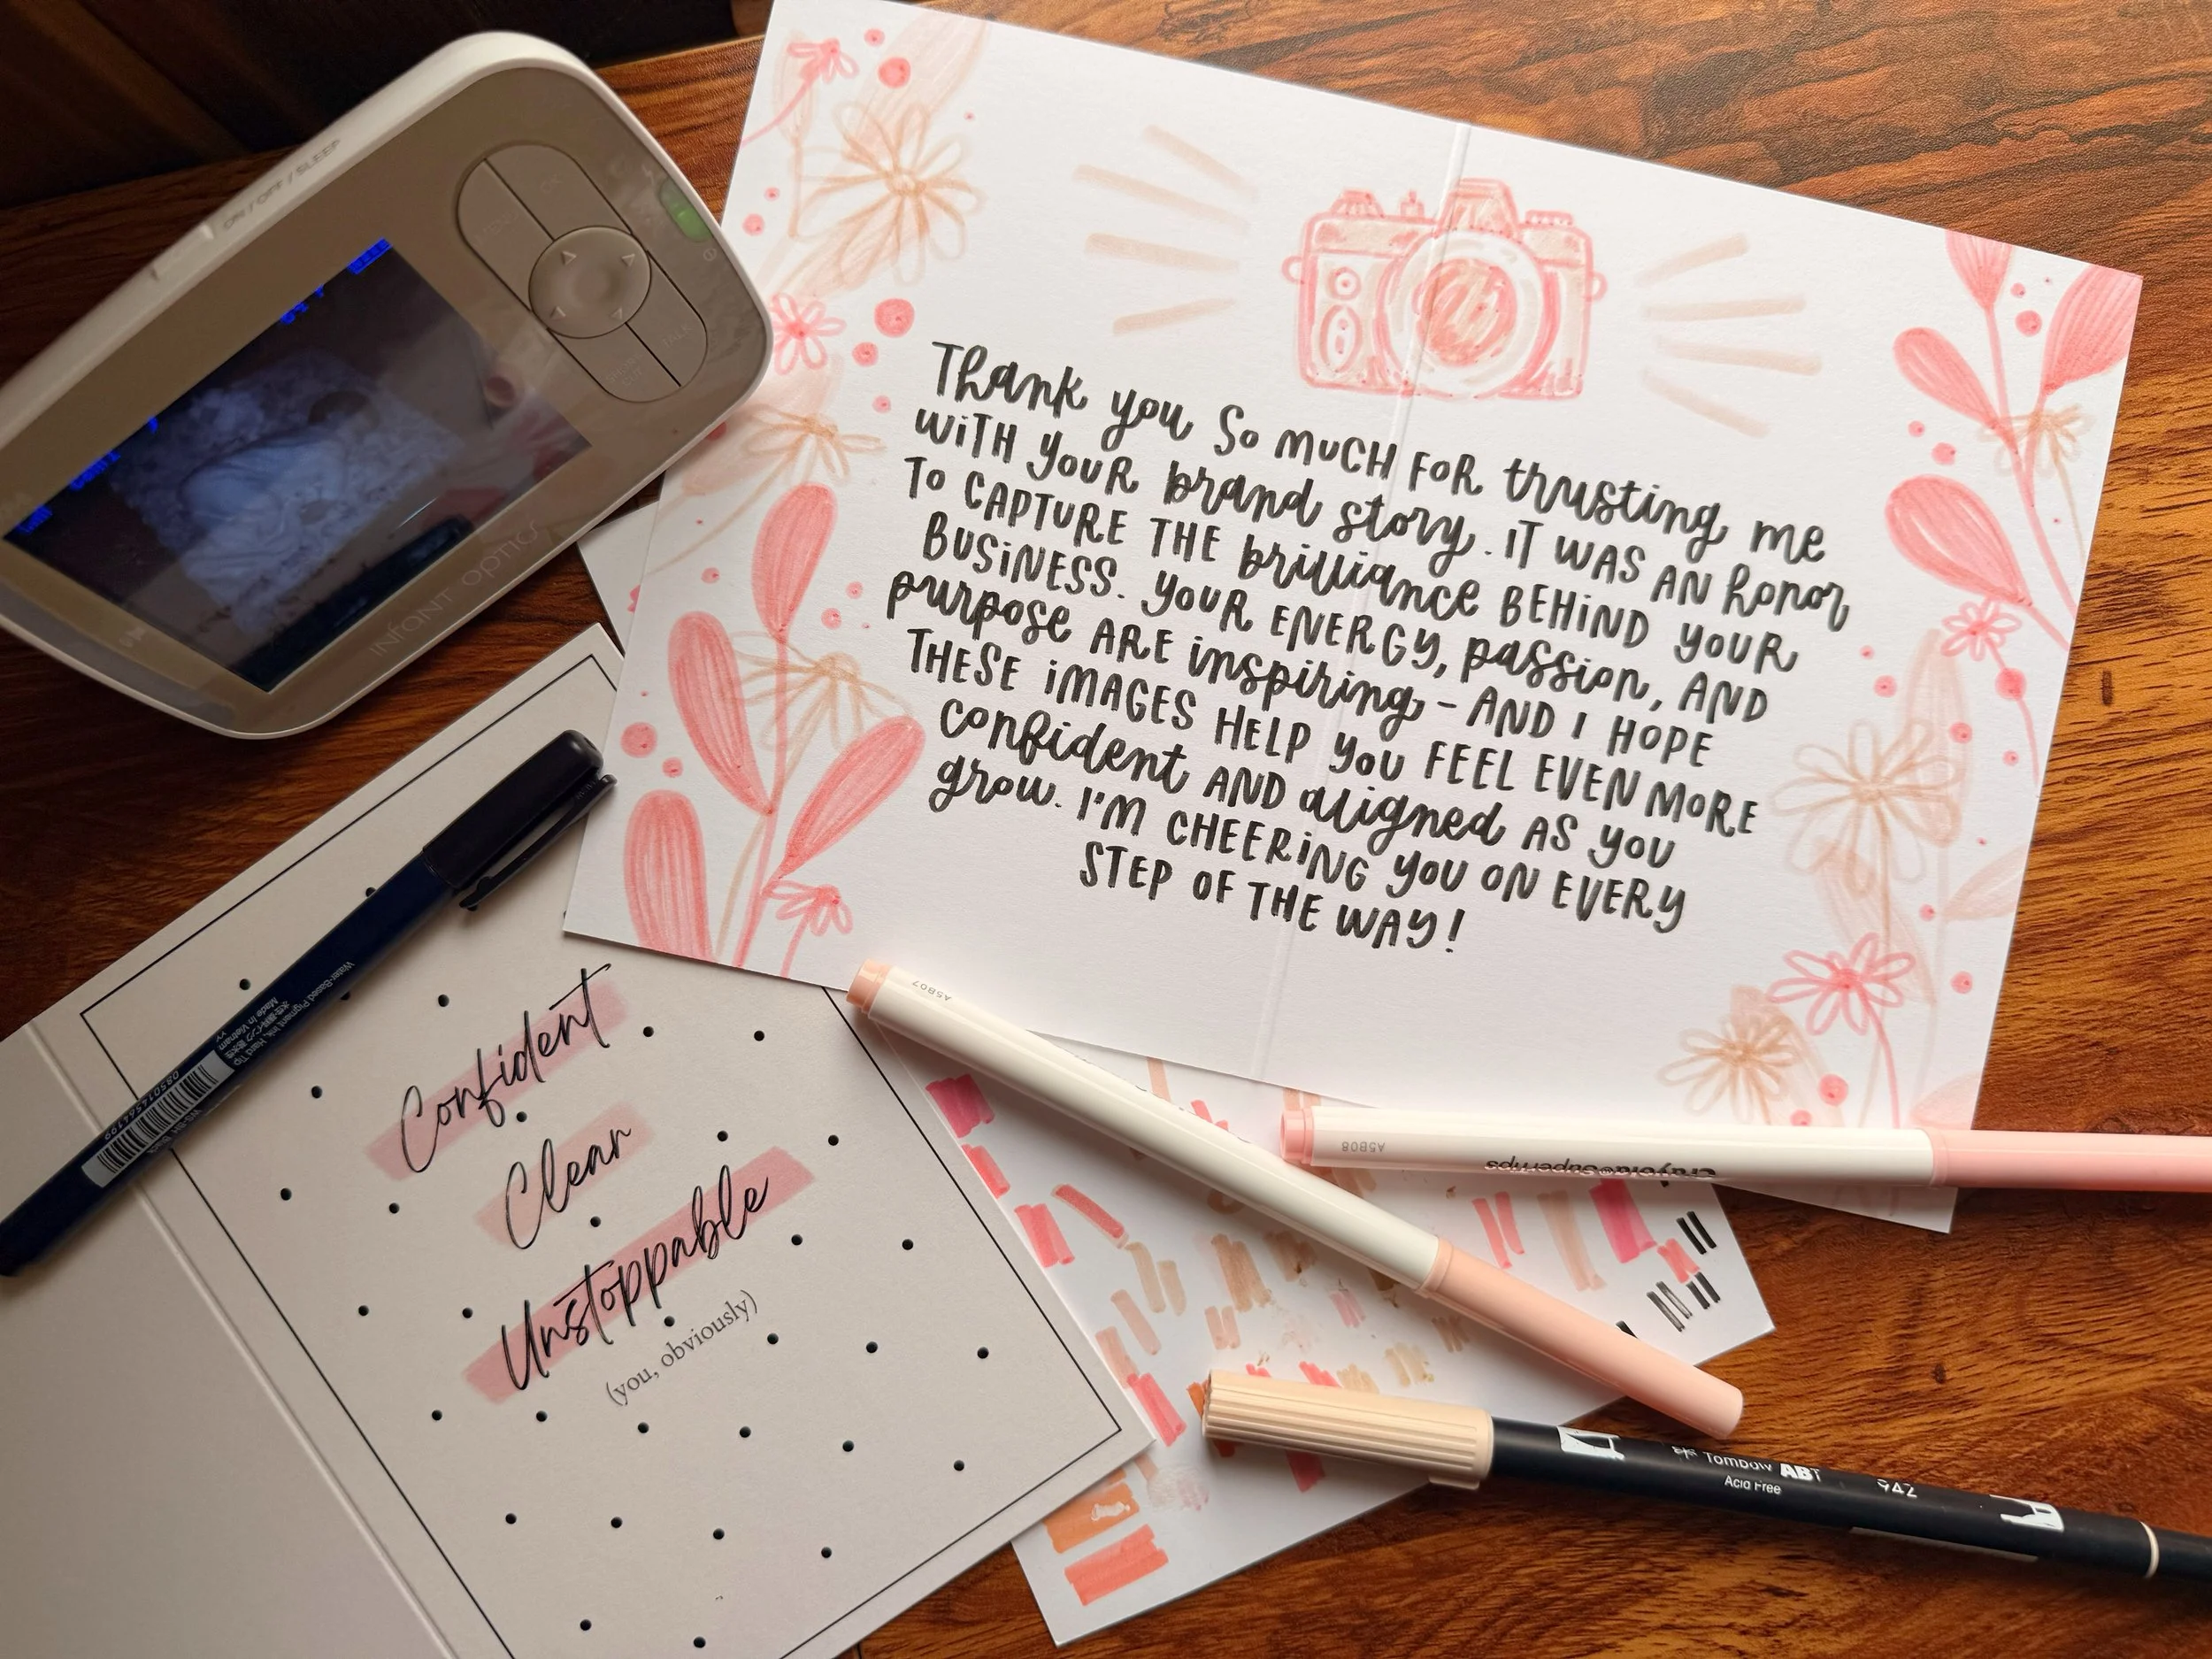 ON / OFF / SLEEP
OK
TALK
SHORT
CUT
INFANT OPTICS
Thank you So MUCH FOR trusting me
WiTH your brand story. IT WAS AN honor
To CAPTURE THE brilliance BEHiND YOUR
BUSiNESS. YOUR ENERGY, passion, AND
purpose ARE inspiring - AND I HOPE
THESE iMAGES HELP you FEEL EVEN MORE
confident AND aligned AS you
grow. I'M CHEERiNG you ON EVERY
STEP OF THE WAY!
Water-Based Pigment Ink, Hard Tip
Made in Vietnam
Confident
Clear
Unstoppable
(you, obviously)
A5B07
A5B08
Crayola Supertips
Tombow ABT 942
Acid Free